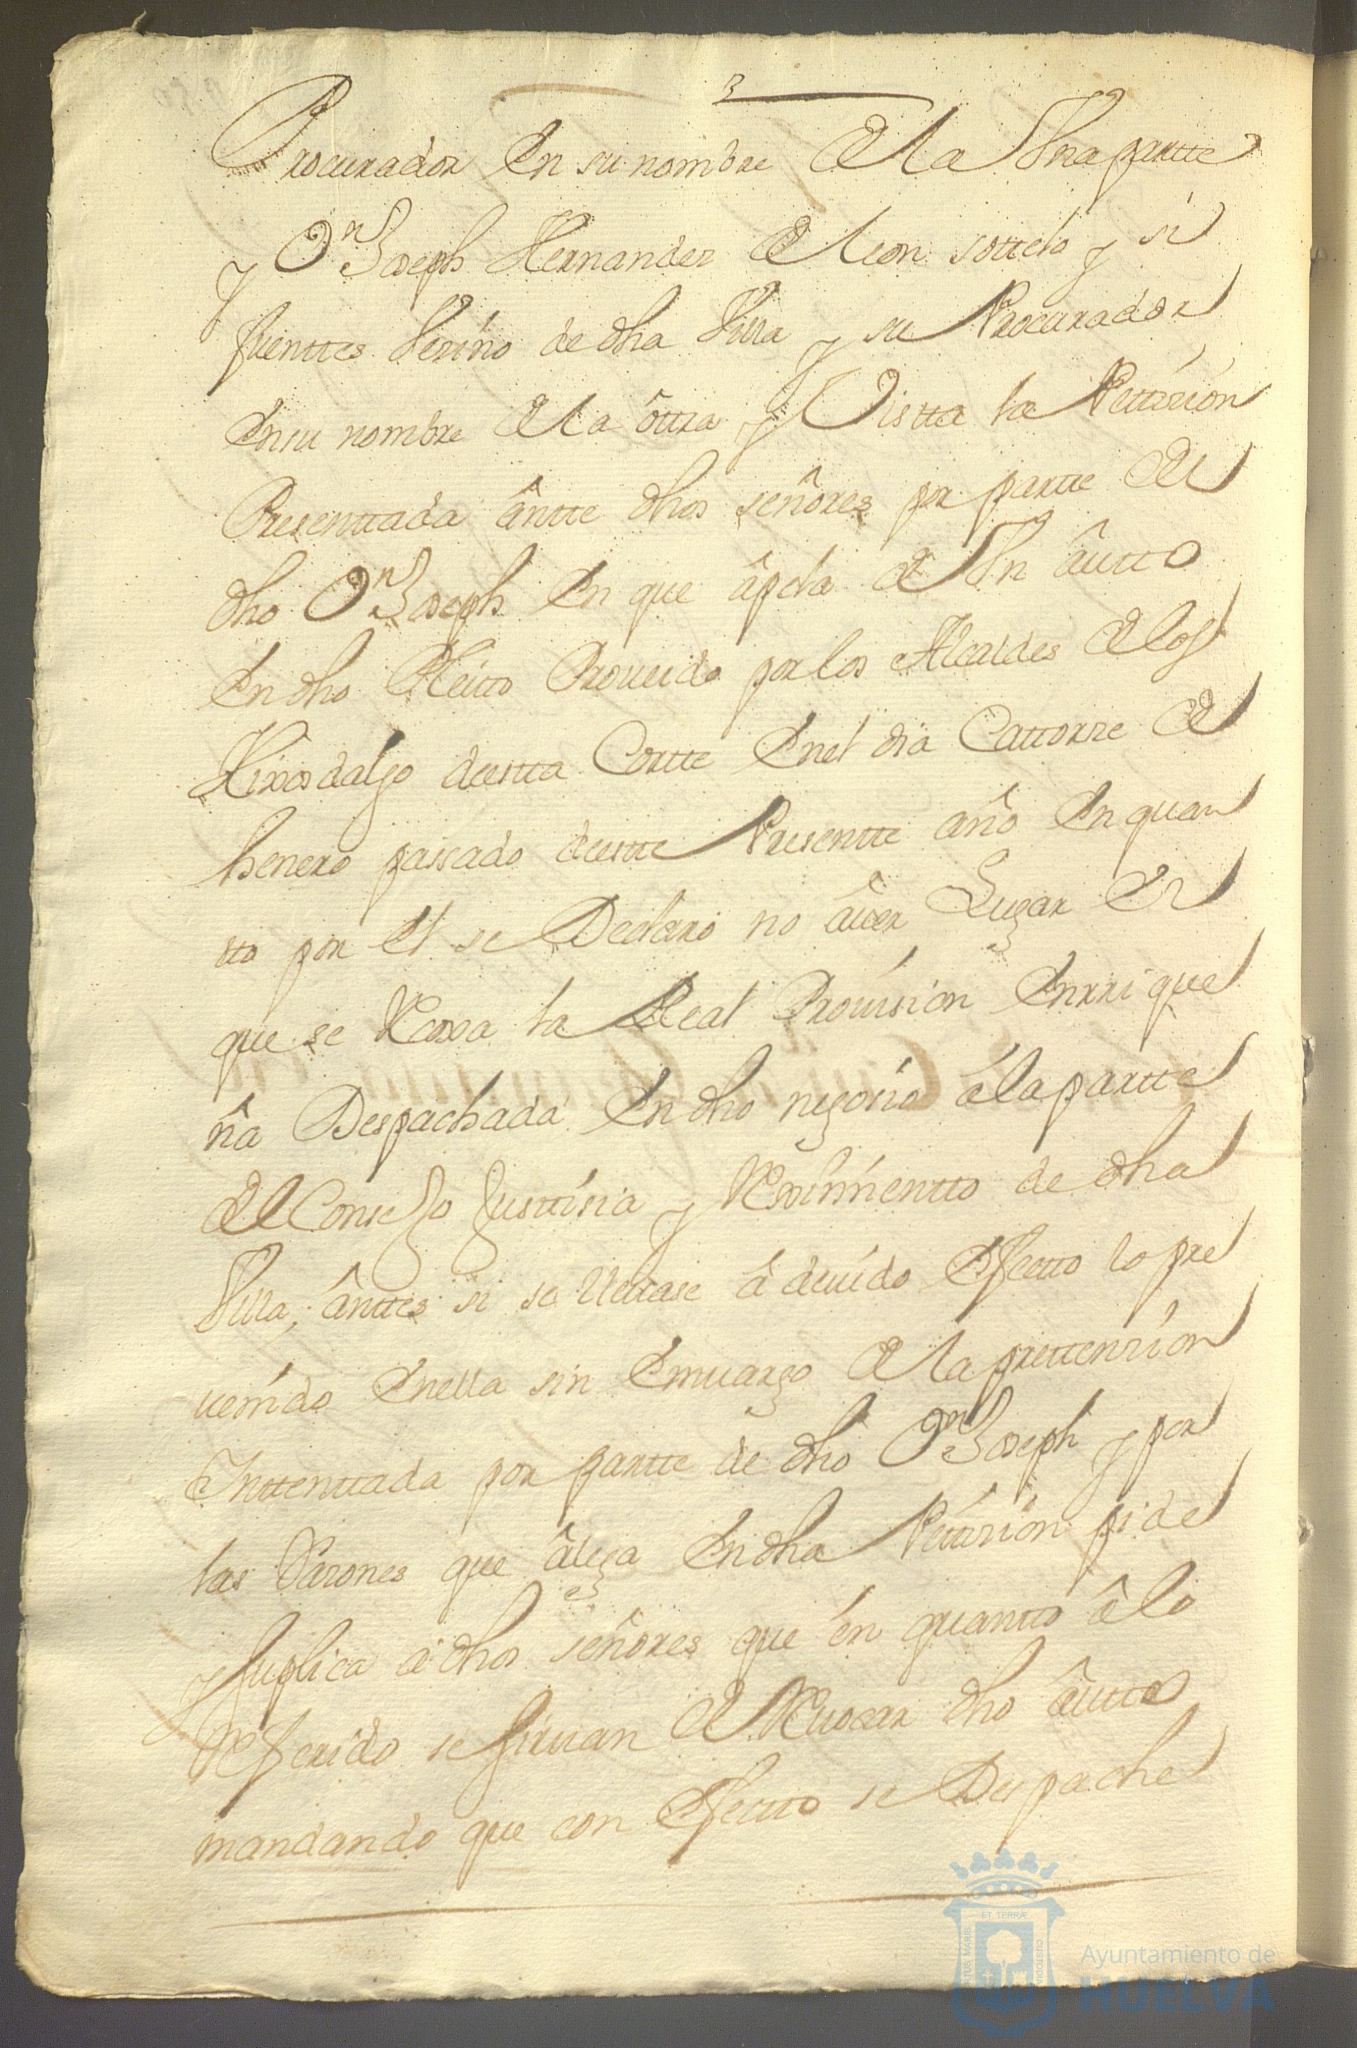 Procurador En su nombre De la Una partte
y Dn Joseph Hernandez De leon sottelo y si
fuenttes Vezino de dha Villa y su Procurador
En su nombre De la ôttra y Vistta la Pettizion
Presenttada ântte dhos señores por partte De
dho Dn Joseph En que âpela De Un âutto
En dho Pleitto Proueido por los Alcaldes De los
Hixosdalgo destta Cortte En el dia Cattorze De
henero passado destte Presentte año En quan
tto por El se Declaro no âuer Lugar El
que se Recoxa la Real Prouision Enrrique
ña Despachada En dho negozio â la partte
Del Consejo Justtisia y Reximientto de dha
Villa, ânttes si se lleuase â deuido Efectto lo pre
uenido En ella sin Emuargo De la prettenzion
Inttenttada por partte de dho Dn Joseph y por
las Razones que âlega En dha Petizion pide
y suplica â dhos señores que en quantto â lo
Referido se siruan De Reuocar dho âutto
mandando que con Efectto se Despache
Ayuntamiento de
HUELVA